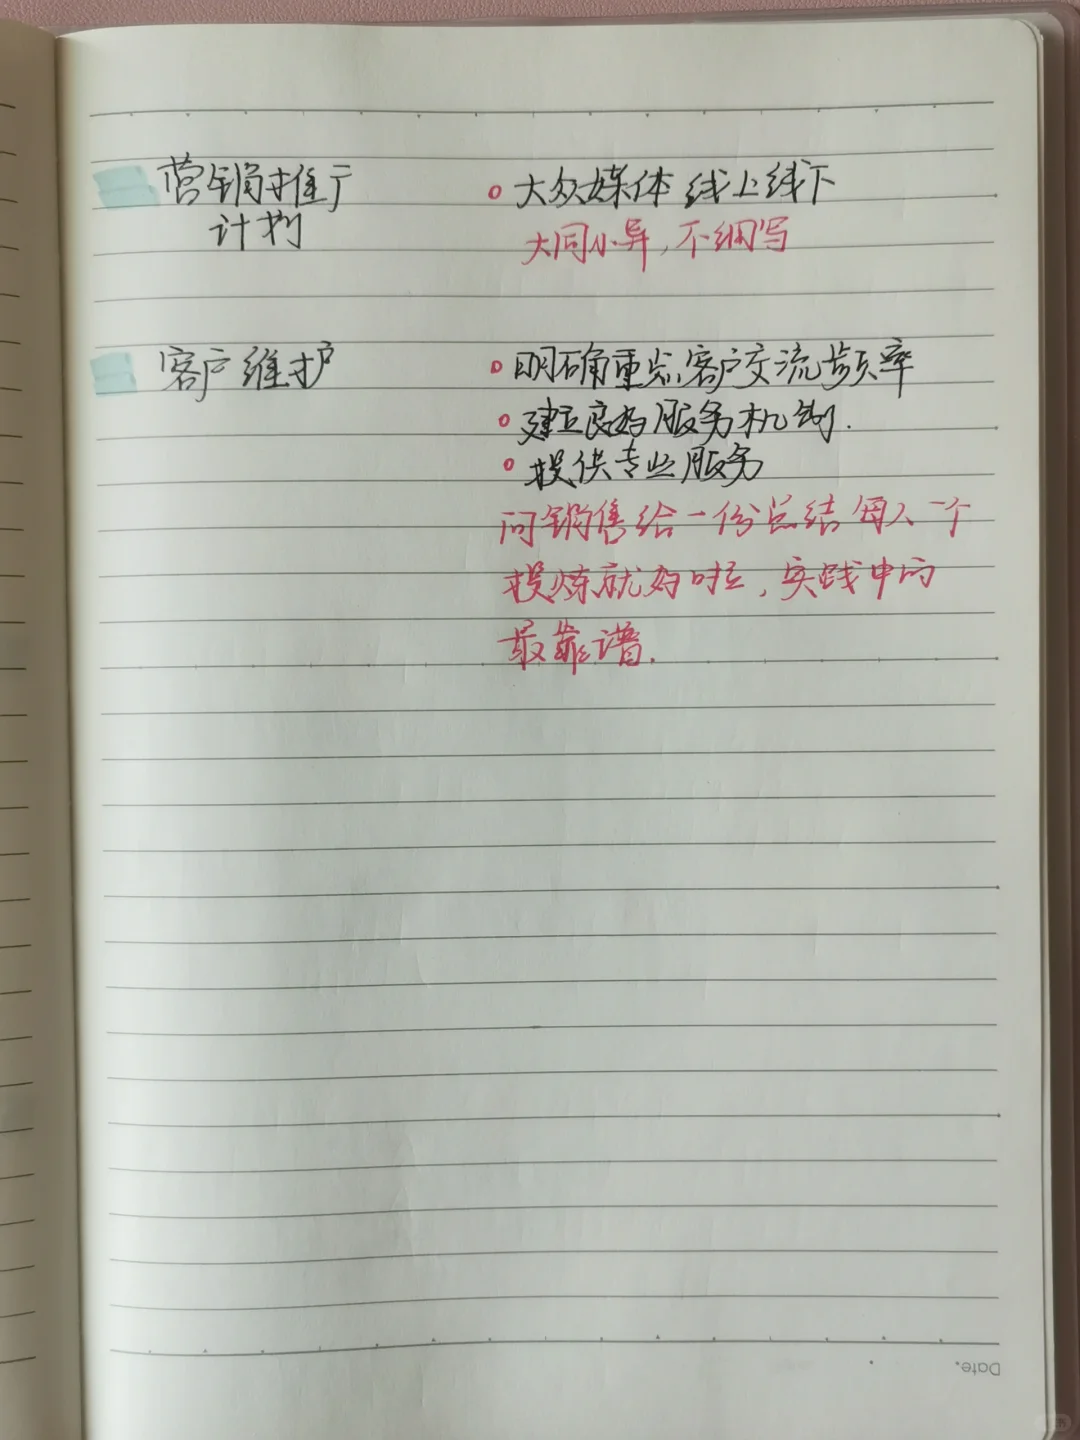 营销推广
计划
大众媒体 线上线下
大同小异，不细写
客户维护
明确重点客户交流频率
建立良好服务机制.
提供专业服务
问销售给一份总结 每人一个
提炼就好啦，实践中的
最靠谱.
Date.